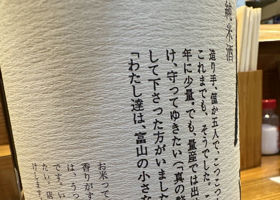 純米酒
造り手、僅か五人で、こつこつ
これまでも、そうでした。こ
年に少量。でも、量産では出
け、守ってゆきたい「真の酒
して下さった方がいました
「わたし達は、富山の小さな
お米って
香りがす
は、うっ
です。い
たい。店
けします